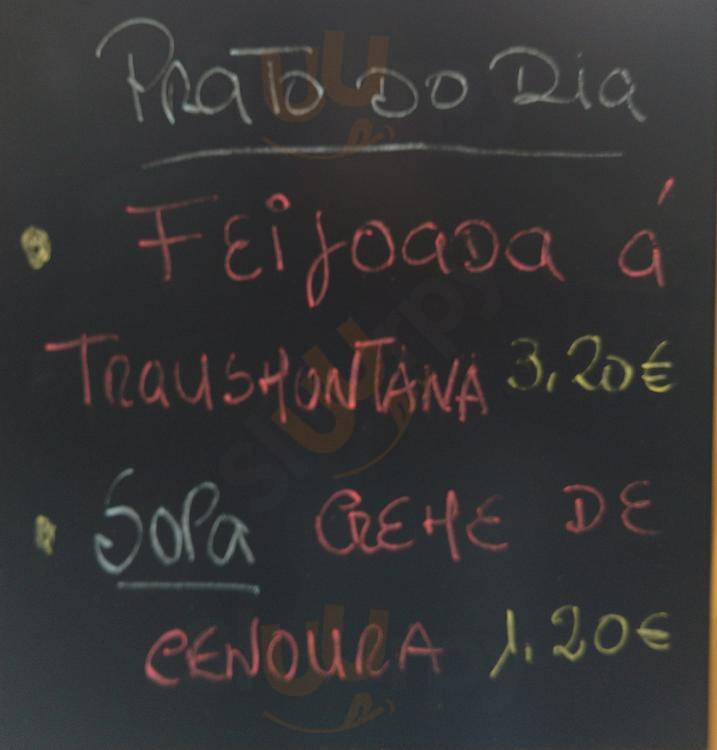 Prato do Dia
Feijoada á
Transmontana 3,20€
Sopa Creme de
Cenoura 1,20€
slurrpy